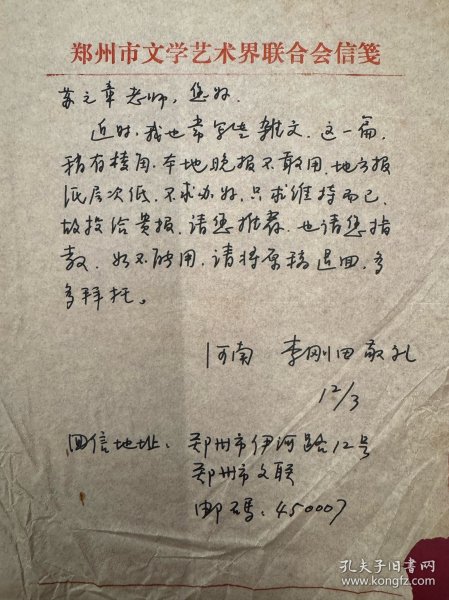 郑州市文学艺术界联合会信笺
苏之章老师，您好。
近时，我也常写些杂文。这一篇，
稍有棱角，本地晚报不敢用，地方报
纸层次低，不求办好，只求维持而已，
故投给贵报，请您推荐，也请您指
教。如不能用，请将原稿退回，多
多拜托。
河南 李刚田敬礼
12/3
回信地址：郑州市伊河路12号
郑州市文联
邮码：450007
孔夫子旧书网
www.kongfz.com